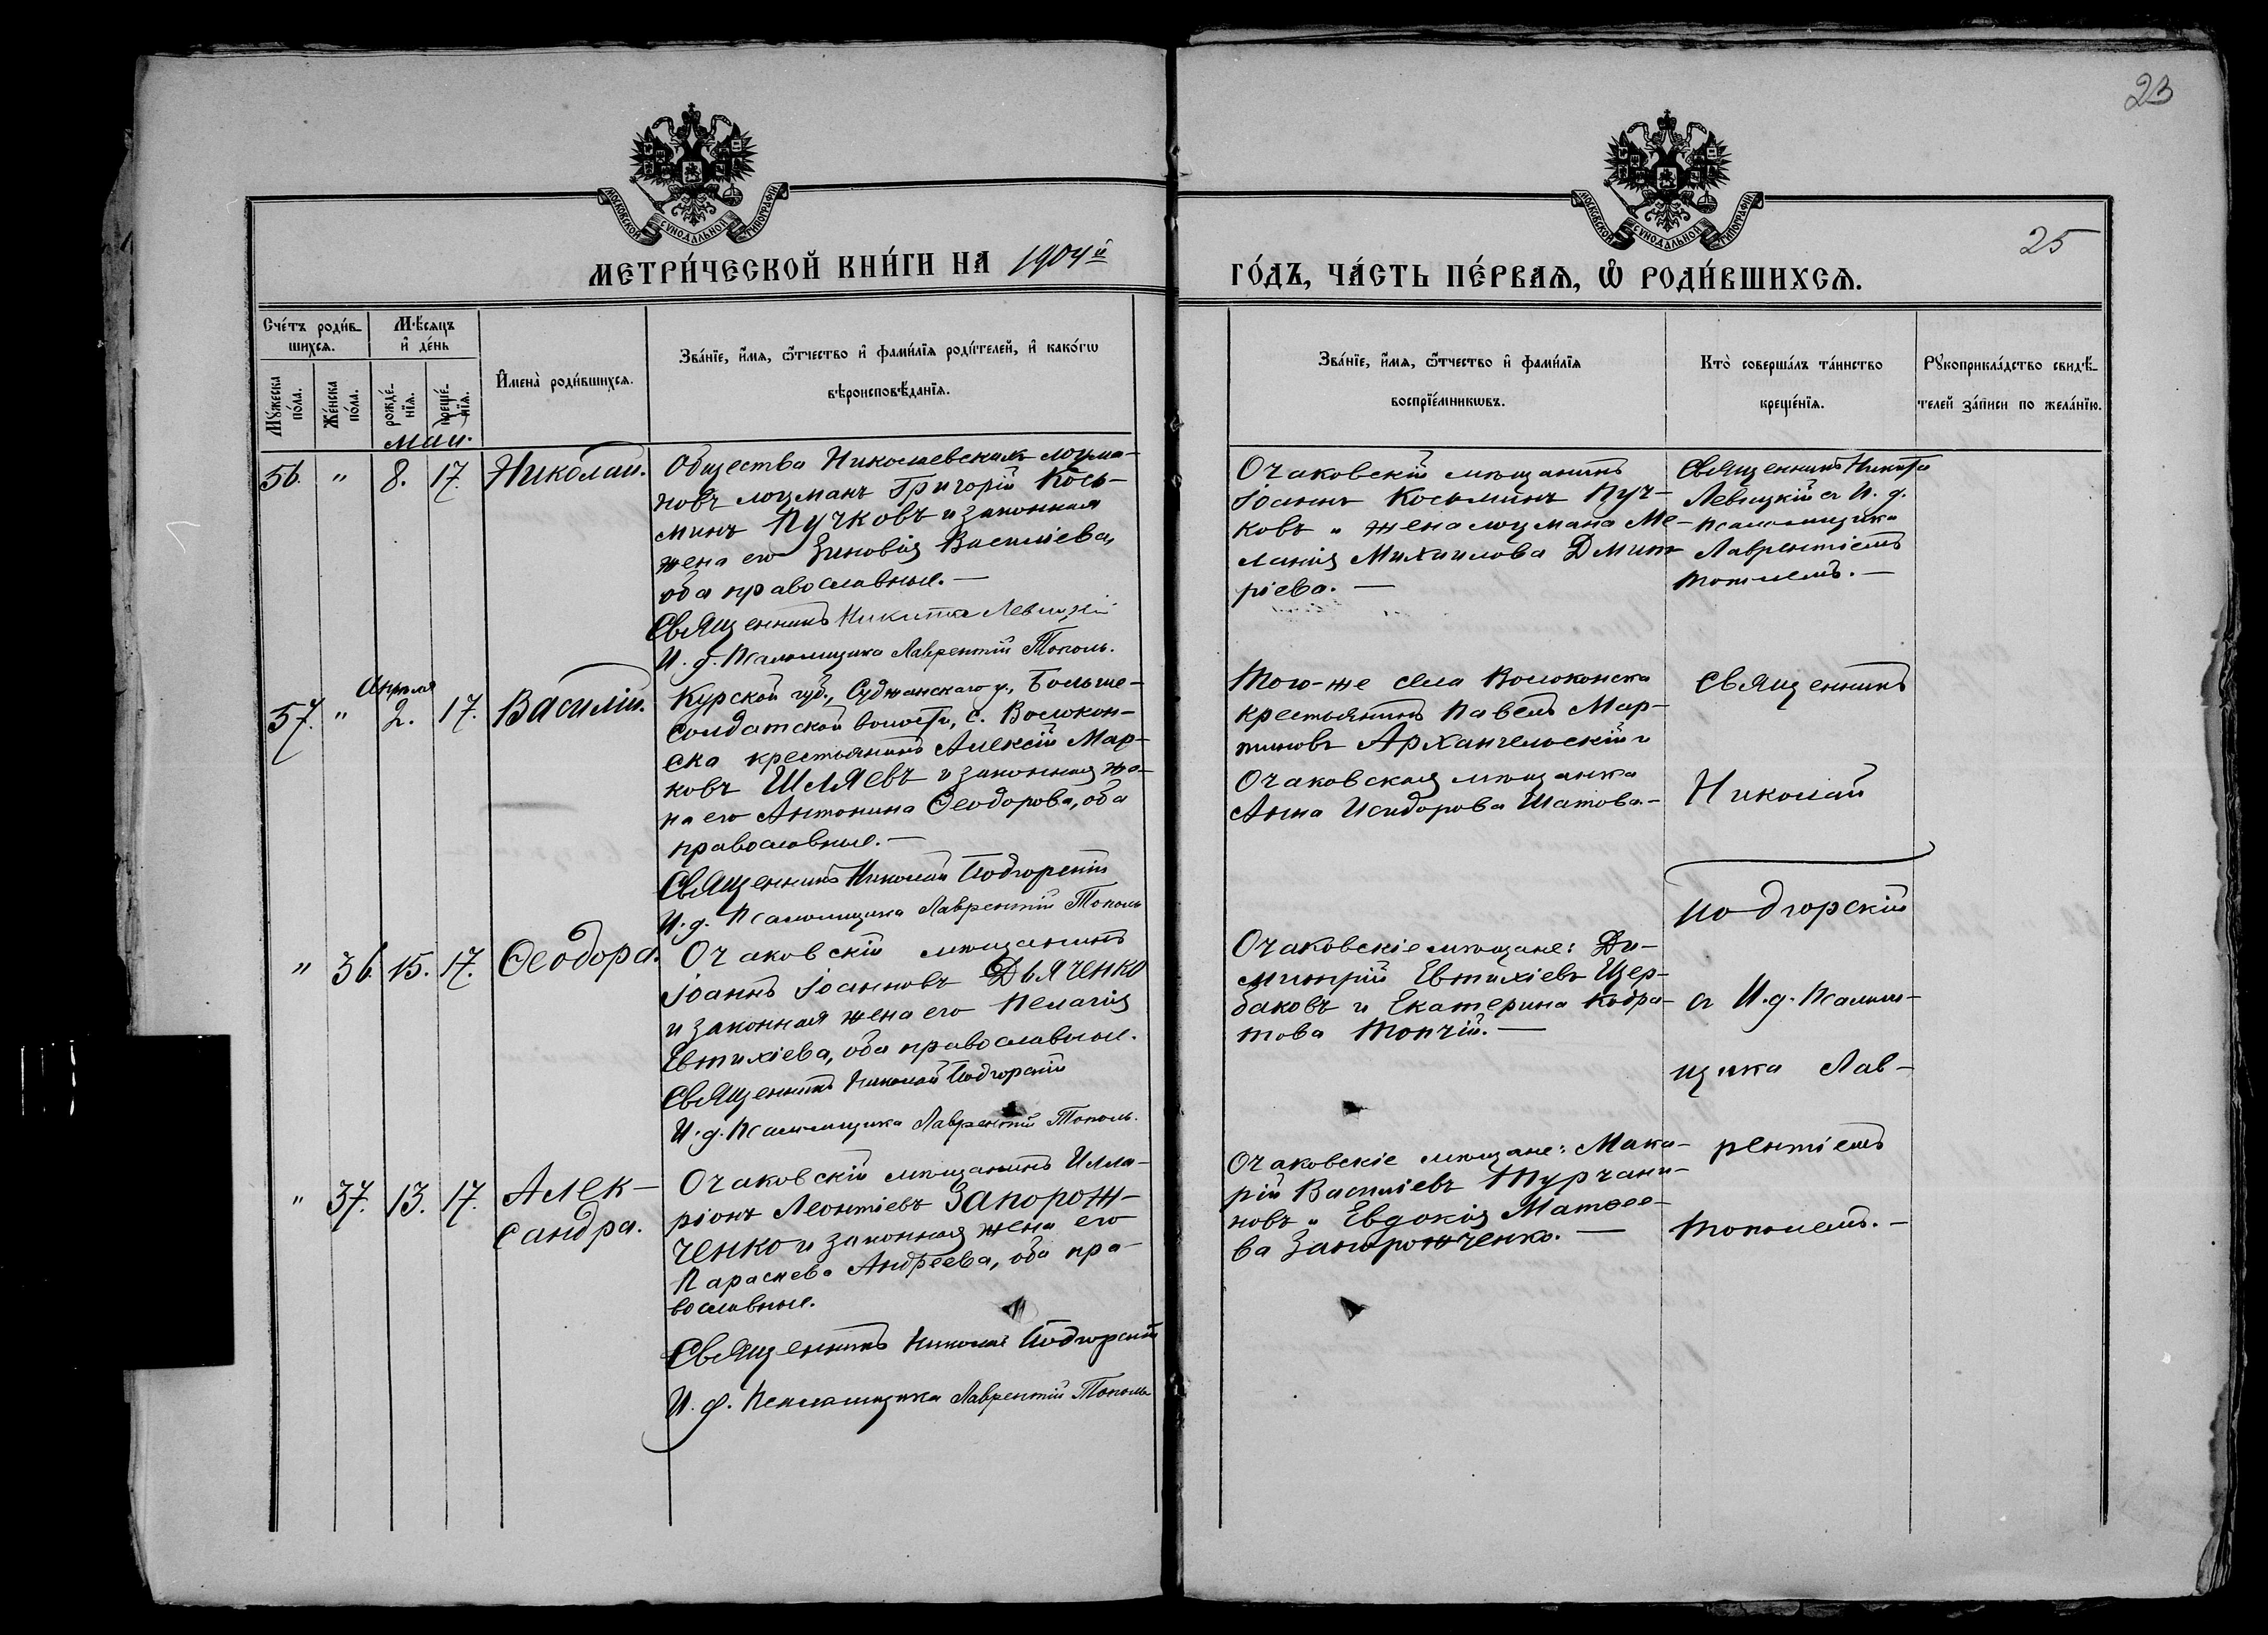 23
МОСКОВСКОЙ СѴНОДАЛЬНОЙ ТИПОГРАФІИ
МОСКОВСКОЙ СѴНОДАЛЬНОЙ ТИПОГРАФІИ
25
МЕТРИ́ЧЕСКОЙ КНИ́ГИ НА 1904й
ГО́ДЪ, ЧА́СТЬ ПЕ́РВАѦ, Ѡ РОДИ́ВШИХСѦ.
Сче́тъ роди́в-
шихсѧ.
Мѣ́сѧцъ
и҆ де́нь
Мꙋ́жеска
по́ла.
Же́нска
по́ла.
рожде́-
нїѧ.
креще́-
нїѧ.
И҆мена̀ роди́вшихсѧ.
Зва́нїе, и҆́мѧ, ѻ҆́тчество и҆ фами́лїѧ роди́телей, и҆ како́гѡ
вѣроисповѣ́данїѧ.
Зва́нїе, и҆́мѧ, ѻ҆́тчество и҆ фами́лїѧ
воспрїе́мникѡвъ.
Кто̀ соверша́лъ та́инство
креще́нїѧ.
Рꙋкоприкла́дство свидѣ́-
телей за́писи по жела́нїю.
Маи.
56. " 8. 17. Николай.
Общества Николаевскихъ лоцма-
новъ лоцманъ Григорій Кось-
минъ Пучковъ и законная
жена его Зиновія Василіева,
оба православные.—
Священникъ Никита Левицкій
И. д. Псаломщика Лаврентій Тополь.
Очаковскій мѣщанинъ
Іоаннъ Косьминъ Пуч-
ковъ и жена лоцмана Ме-
ланія Михаилова Дмит-
ріева.—
Священникъ Никита
Левицкій съ И. д.
Псаломщика
Лаврентіемъ
Тополемъ.—
57. " Апрѣля 2. 17. Василій.
Курской губ., Суджанскаго у., Больше-
солдатской волости, с. Волокон-
ска крестьянинъ Алексій Мар-
ковъ Шляевъ и законная же-
на его Антонина Ѳеодорова, оба
православные.—
Священникъ Николай Подгорскій
И. д. Псаломщика Лаврентій Тополь
Того-же села Волоконска
крестьянинъ Павелъ Мар-
тиновъ Архангельскій и
Очаковская мѣщанка
Анна Исидорова Шатова.—
Священникъ
Николай
Подгорскій
съ И. д. Псалом-
щика Лав-
рентіемъ
Тополемъ.—
" 36. 15. 17. Ѳеодора.
Очаковскій мѣщанинъ
Іоаннъ Іоанновъ Дьяченко
и законная жена его Пелагія
Евтихіева, оба православные.
Священникъ Николай Подгорскій
И. д. Псаломщика Лаврентій Тополь.
Очаковскіе мѣщане: Ди-
митрій Евтихіевъ Щер-
баковъ и Екатерина Кодра-
това Топчій.—
" 37. 13. 17. Алек-
сандра.
Очаковскій мѣщанинъ Илла-
ріонъ Леонтіевъ Запорож-
ченко и законная жена его
Параскева Андреева, оба пра-
вославные.
Священникъ Николай Подгорскій
И. д. Псаломщика Лаврентій Тополь
Очаковскіе мѣщане: Мака-
рій Василіевъ Турчани-
новъ и Евдокія Матѳее-
ва Запорожченко.—